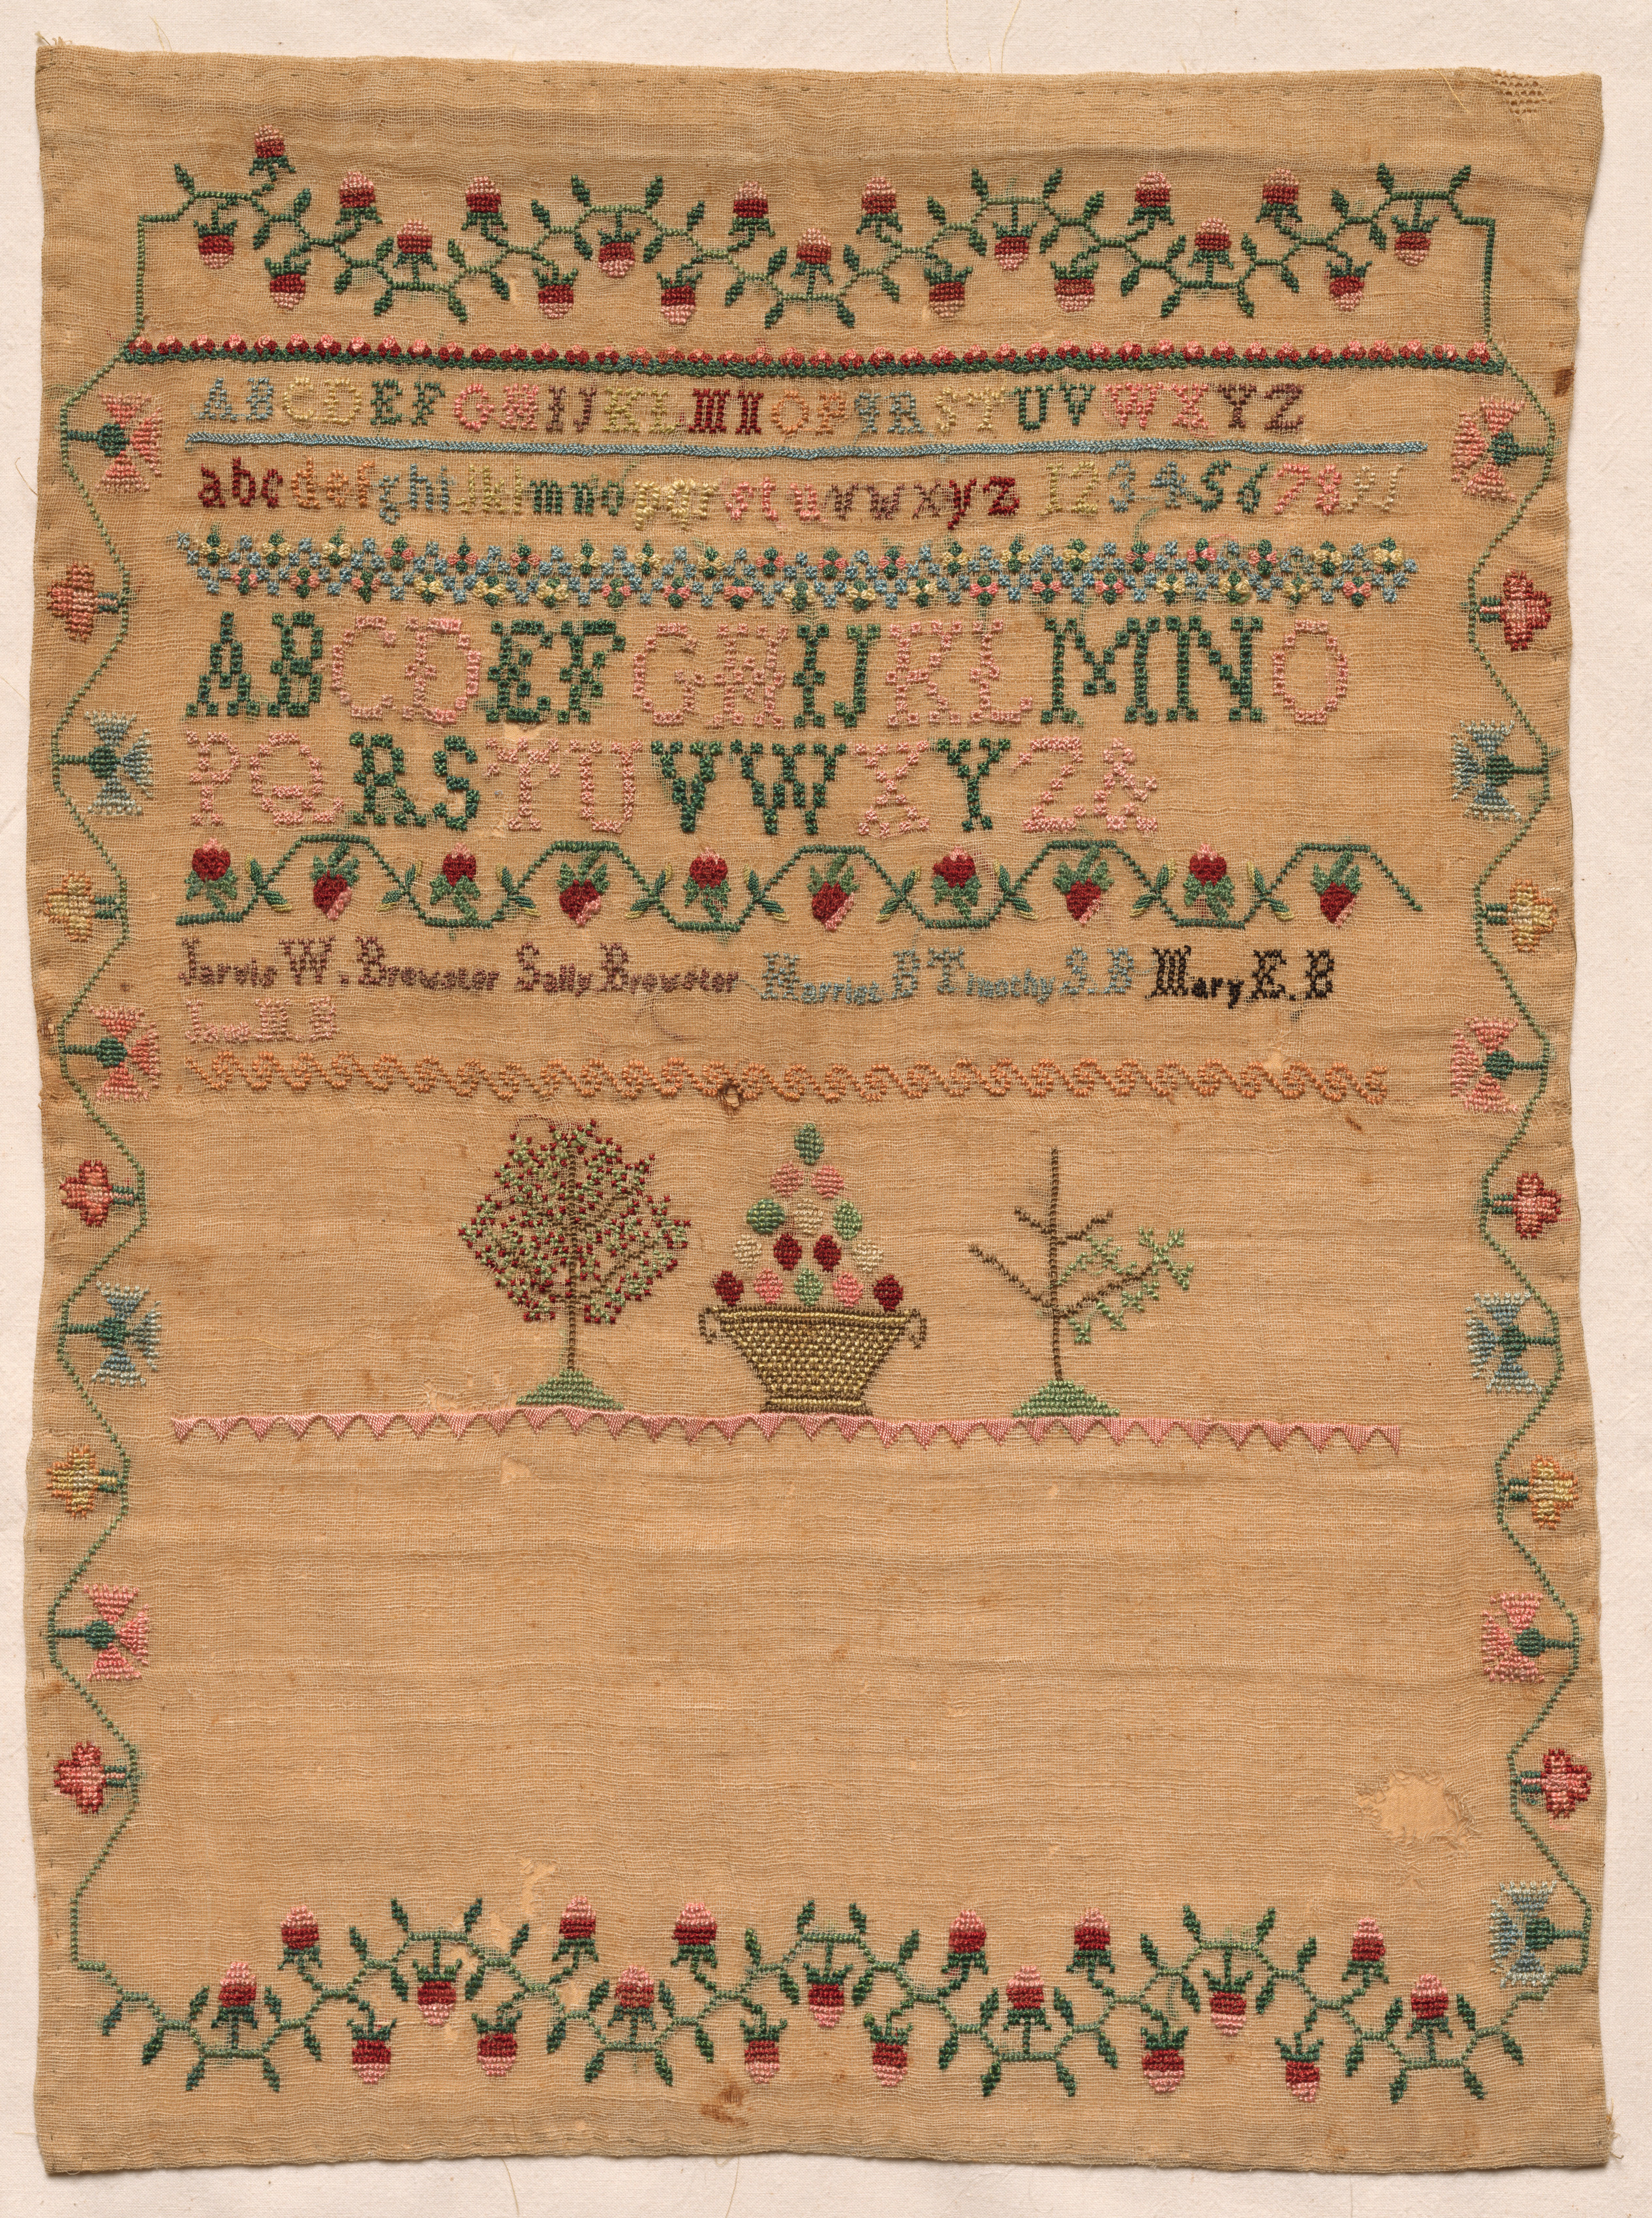 ABCDEFGHIJKLMNOPQRSTUVWXYZ
abcdefghijklmnopqrstuvwxyz 12345678 91
ABCDEFGHIJKLMNO
PQRSTUVWXYZ&
Jarvis W. Brewster Sally Brewster Harriet B Timothy S. B Mary E. B
M B